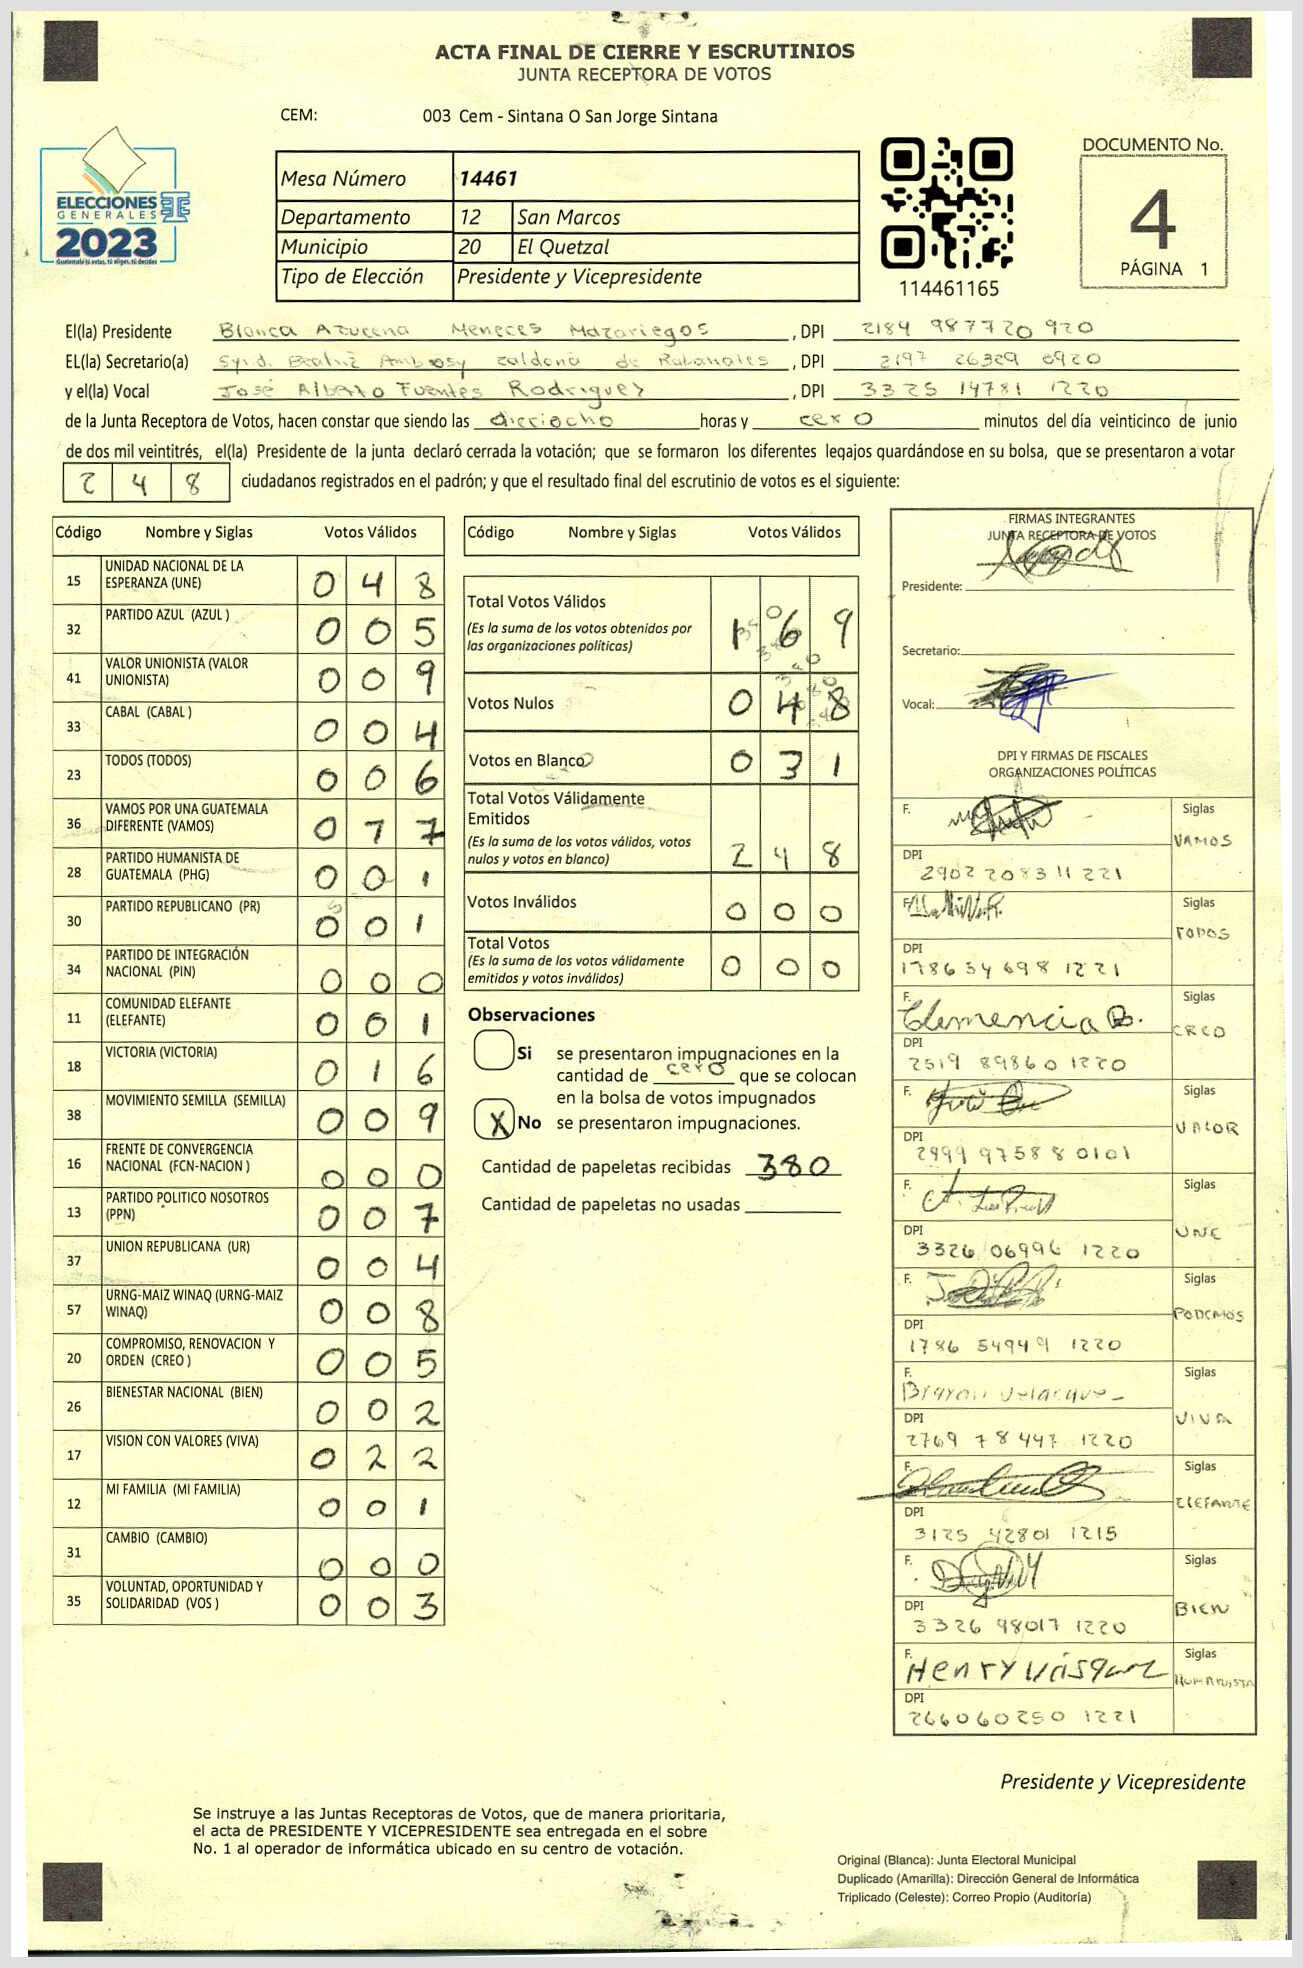 ACTA FINAL DE CIERRE Y ESCRUTINIOS
JUNTA RECEPTORA DE VOTOS
CEM: 003 Cem - Sintana O San Jorge Sintana
ELECCIONES
GENERALES
2023
Guatemala tú votas, tú eliges, tú decides
Mesa Número 14461
Departamento 12 San Marcos
Municipio 20 El Quetzal
Tipo de Elección Presidente y Vicepresidente
114461165
DOCUMENTO No.
4
PÁGINA 1
El(la) Presidente Blanca Azucena Meneces Mazariegos, DPI 2184 987720 920
EL(la) Secretario(a) Beatriz de Rabanales, DPI 2197 26329 0920
y el(la) Vocal José Alberto Fuentes Rodriguez, DPI 3325 14781 1220
de la Junta Receptora de Votos, hacen constar que siendo las dieciocho horas y cero minutos del día veinticinco de junio
de dos mil veintitrés, el(la) Presidente de la junta declaró cerrada la votación; que se formaron los diferentes legajos guardándose en su bolsa, que se presentaron a votar
2 4 8 ciudadanos registrados en el padrón; y que el resultado final del escrutinio de votos es el siguiente:
Código Nombre y Siglas Votos Válidos
15 UNIDAD NACIONAL DE LA ESPERANZA (UNE) 0 4 8
32 PARTIDO AZUL (AZUL ) 0 0 5
41 VALOR UNIONISTA (VALOR UNIONISTA) 0 0 9
33 CABAL (CABAL ) 0 0 4
23 TODOS (TODOS) 0 0 6
36 VAMOS POR UNA GUATEMALA DIFERENTE (VAMOS) 0 7 7
28 PARTIDO HUMANISTA DE GUATEMALA (PHG) 0 0 1
30 PARTIDO REPUBLICANO (PR) 0 0 1
34 PARTIDO DE INTEGRACIÓN NACIONAL (PIN) 0 0 0
11 COMUNIDAD ELEFANTE (ELEFANTE) 0 0 1
18 VICTORIA (VICTORIA) 0 1 6
38 MOVIMIENTO SEMILLA (SEMILLA) 0 0 9
16 FRENTE DE CONVERGENCIA NACIONAL (FCN-NACION ) 0 0 0
13 PARTIDO POLITICO NOSOTROS (PPN) 0 0 7
37 UNION REPUBLICANA (UR) 0 0 4
57 URNG-MAIZ WINAQ (URNG-MAIZ WINAQ) 0 0 8
20 COMPROMISO, RENOVACION Y ORDEN (CREO ) 0 0 5
26 BIENESTAR NACIONAL (BIEN) 0 0 2
17 VISION CON VALORES (VIVA) 0 2 2
12 MI FAMILIA (MI FAMILIA) 0 0 1
31 CAMBIO (CAMBIO) 0 0 0
35 VOLUNTAD, OPORTUNIDAD Y SOLIDARIDAD (VOS ) 0 0 3
Código Nombre y Siglas Votos Válidos
Total Votos Válidos 1 6 9
(Es la suma de los votos obtenidos por
las organizaciones políticas)
Votos Nulos 0 4 8
Votos en Blanco 0 3 1
Total Votos Válidamente
Emitidos
(Es la suma de los votos válidos, votos
nulos y votos en blanco) 2 4 8
Votos Inválidos 0 0 0
Total Votos
(Es la suma de los votos válidamente
emitidos y votos inválidos) 0 0 0
Observaciones
Si se presentaron impugnaciones en la
cantidad de cero que se colocan
en la bolsa de votos impugnados
X No se presentaron impugnaciones.
Cantidad de papeletas recibidas 380
Cantidad de papeletas no usadas
FIRMAS INTEGRANTES
JUNTA RECEPTORA DE VOTOS
Presidente:
Secretario:
Vocal:
DPI Y FIRMAS DE FISCALES
ORGANIZACIONES POLÍTICAS
F. Siglas VAMOS
DPI 2902 20831 1221
F. Siglas TODOS
DPI 1786 54698 1221
F. Clemencia B. Siglas CREO
DPI 2519 89860 1220
F. Siglas VALOR
DPI 2999 97588 0101
F. Siglas UNE
DPI 3326 06996 1220
F. Siglas PODEMOS
DPI 1786 54949 1220
F. Siglas VIVA
DPI 2769 78447 1220
F. Siglas ELEFANTE
DPI 3125 42801 1215
F. Siglas BIEN
DPI 3326 98017 1220
F. Henry Vásquez Siglas HUMANISTA
DPI 266060250 1221
Presidente y Vicepresidente
Se instruye a las Juntas Receptoras de Votos, que de manera prioritaria,
el acta de PRESIDENTE Y VICEPRESIDENTE sea entregada en el sobre
No. 1 al operador de informática ubicado en su centro de votación.
Original (Blanca): Junta Electoral Municipal
Duplicado (Amarilla): Dirección General de Informática
Triplicado (Celeste): Correo Propio (Auditoría)